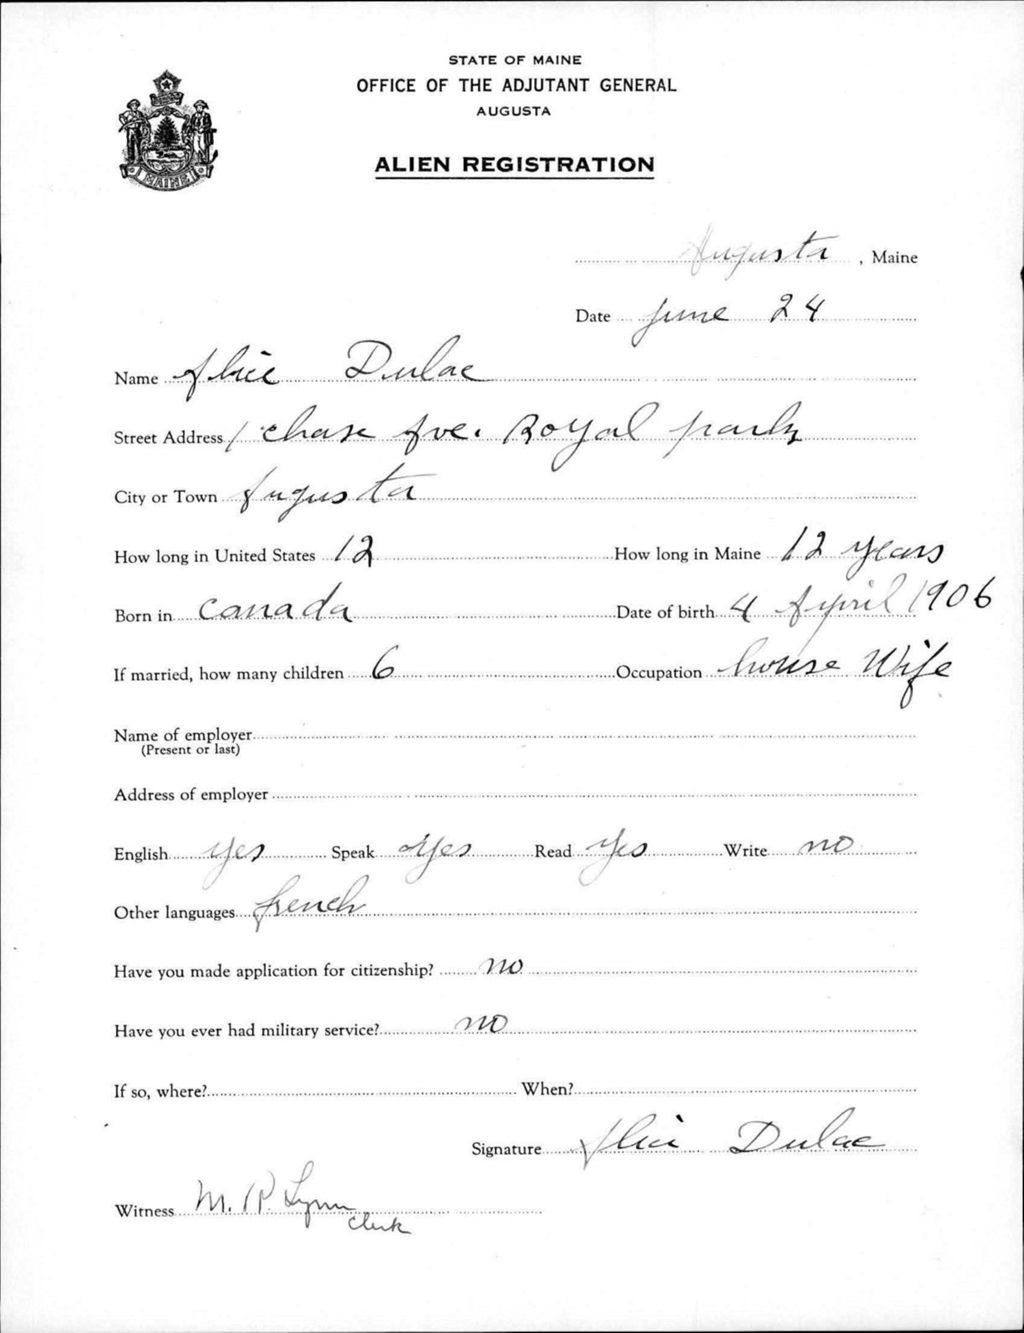 STATE OF MAINE
OFFICE OF THE ADJUTANT GENERAL
AUGUSTA
ALIEN REGISTRATION
MAINE
Augusta, Maine
Date June 24
Name Alice Dulac
Street Address 1 Chase Ave. Royal park
City or Town Augusta
How long in United States 12 How long in Maine 12 years
Born in Canada Date of birth 4 April 1906
If married, how many children 6 Occupation house Wife
Name of employer
(Present or last)
Address of employer
English yes Speak Yes Read Yes Write no
Other languages french
Have you made application for citizenship? no
Have you ever had military service? no
If so, where? When?
Signature Alice Dulac
Witness M. P. Lynn
Clerk